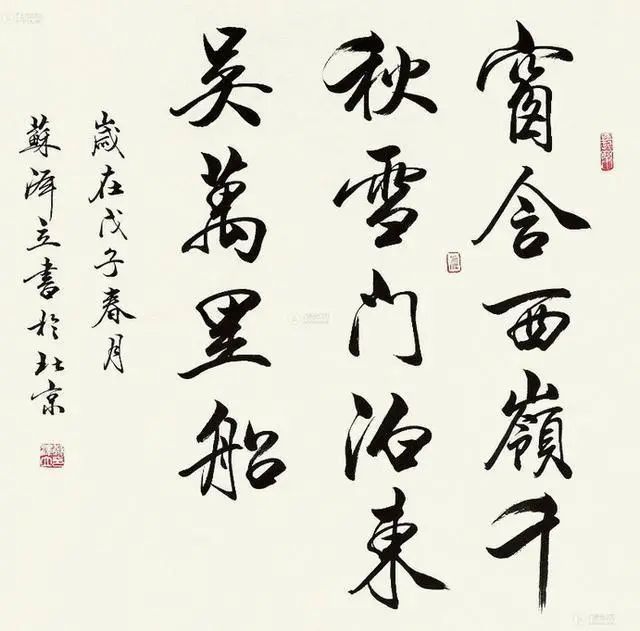 窗含西嶺千
秋雪门泊東
吳萬里船
歲在戊子春月
蘇澤立書於北京